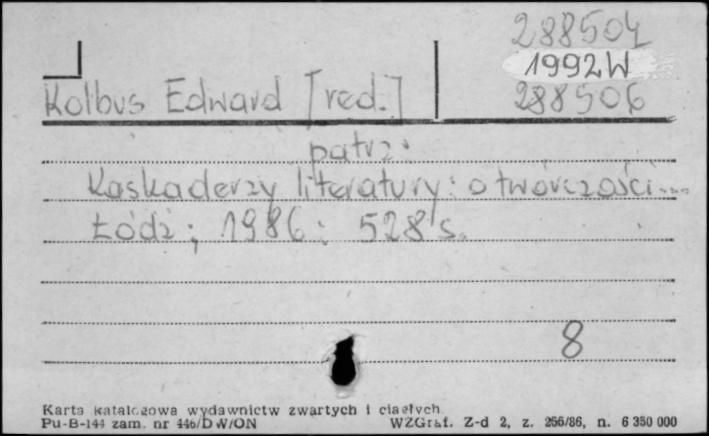 288504
1992W
Kolbus Edward [red.] 288506
patrz:
Kaskaderzy literatury: o twórczości...
Łódź; 1986: 528 s.
8
Karta katalogowa wydawnictw zwartych i ciągłych.
Pu-B-144 zam. nr 446/DW/ON WZGraf. Z-d 2, z. 266/86, n. 6 350 000